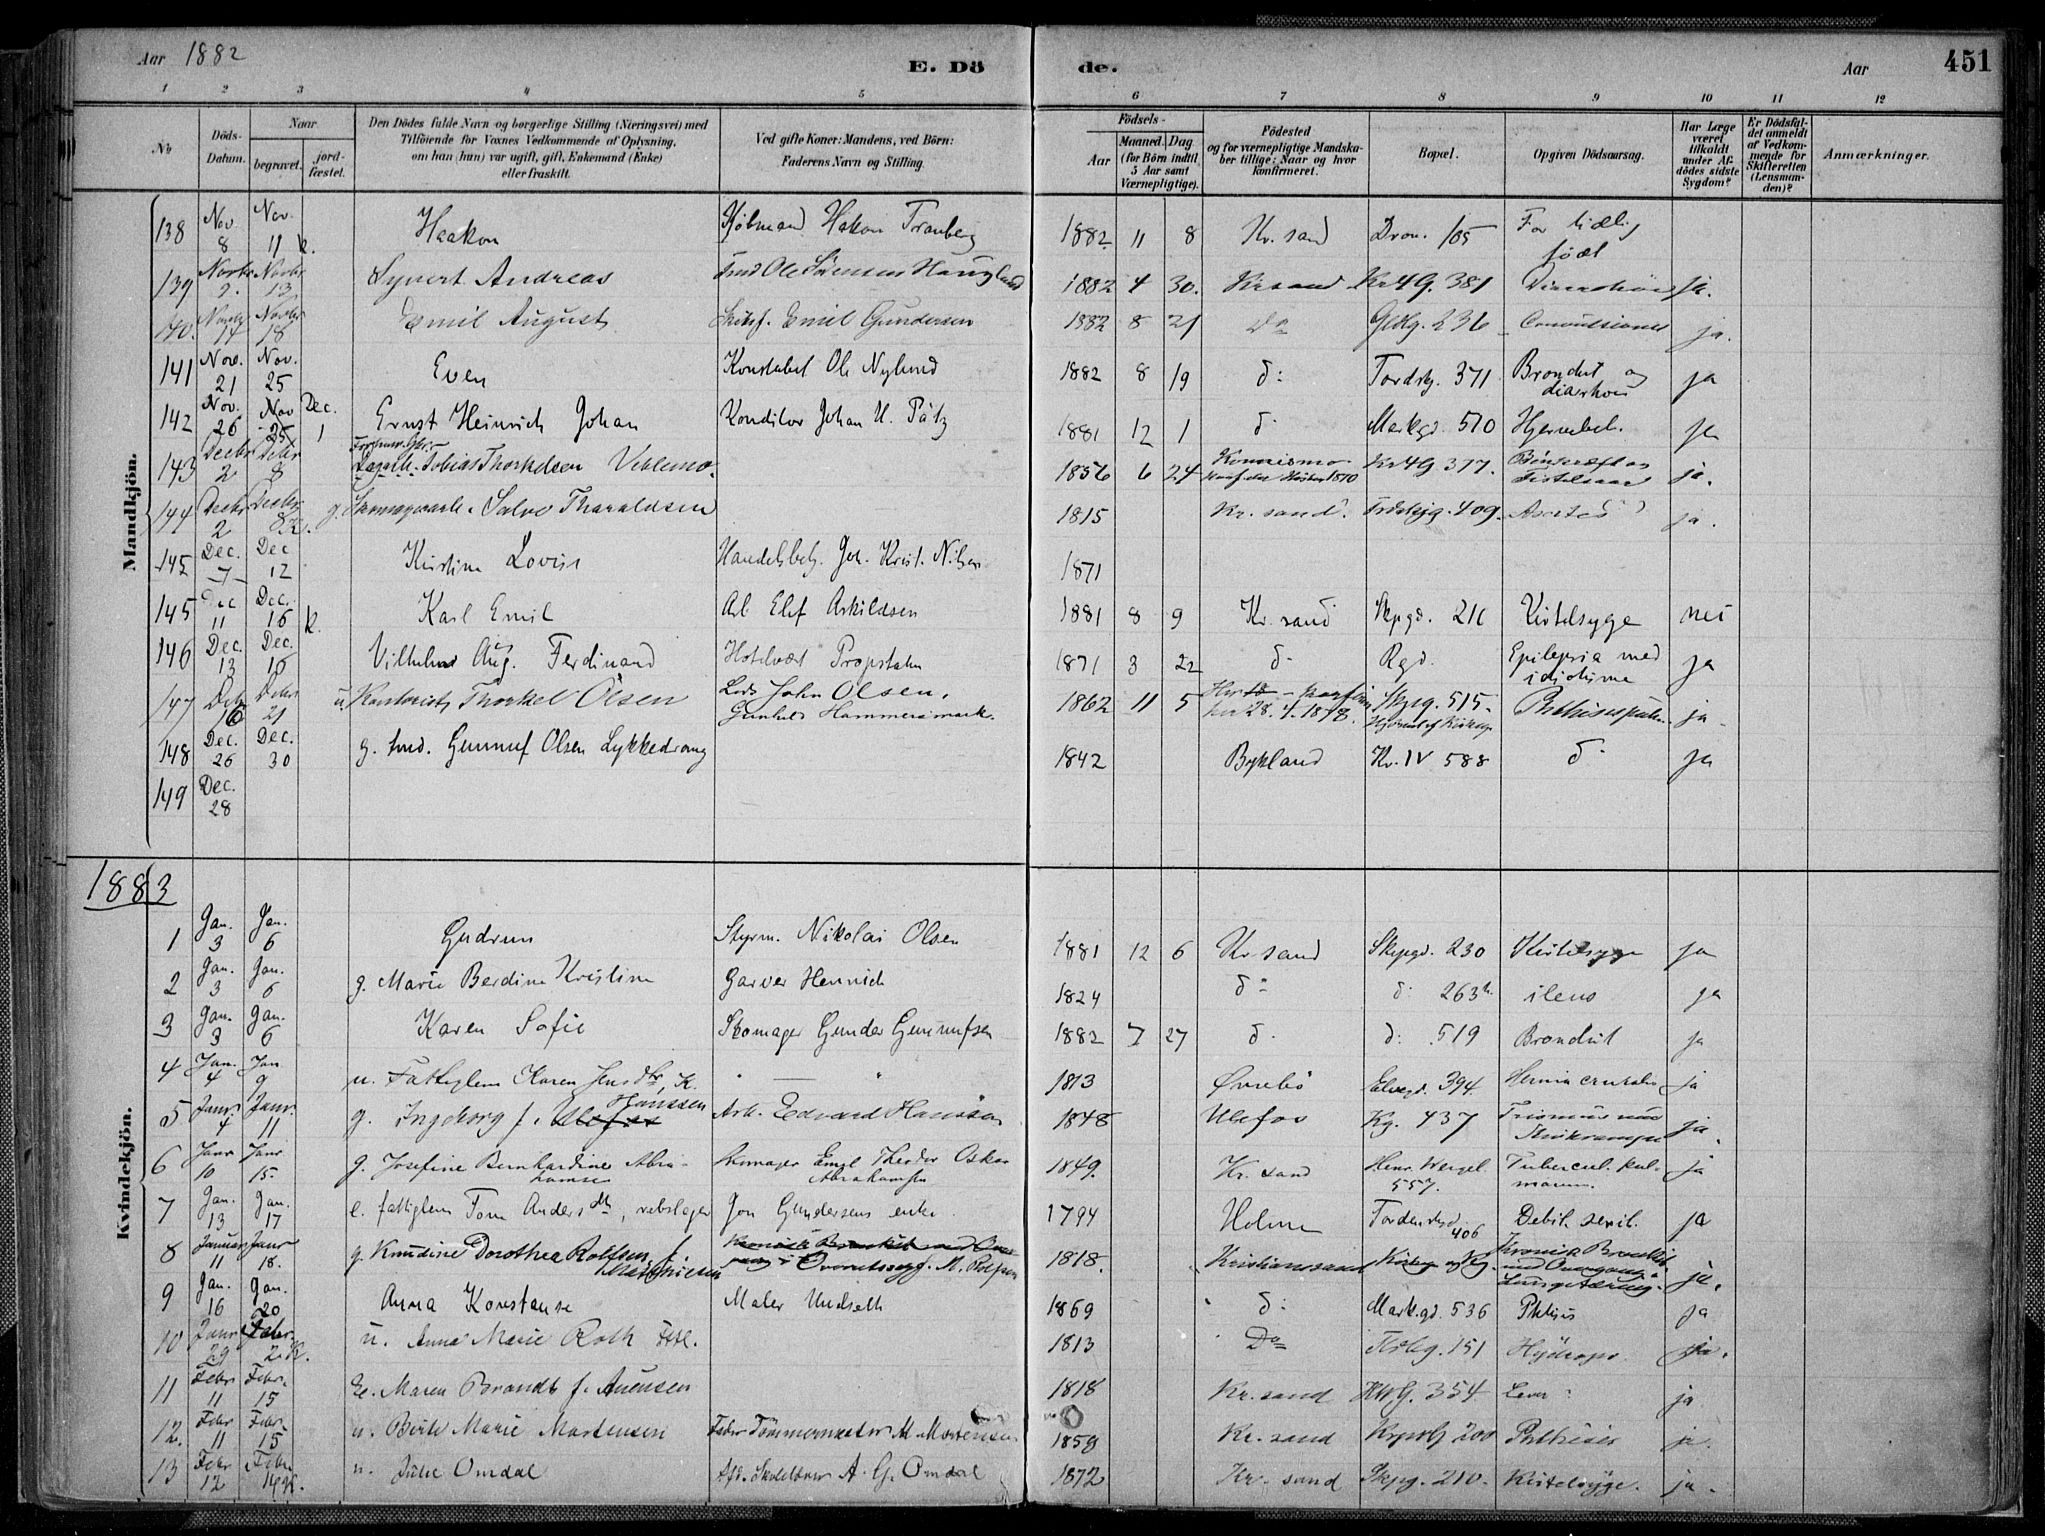 Aar 1882 E. Dö de. Aar 451
1 2 3 4 5 6 7 8 9 10 11 12
No Döds-Datum. Naar begravet. jordfæstet. Den Dödes fulde Navn og borgerlige Stilling (Næringsvei) med Tilföiende for Voxnes Vedkommende af Oplysning, om han (hun) var ugift, gift, Enkemand (Enke) eller fraskilt. Ved gifte Koner: Mandens, ved Börn: Faderens Navn og Stilling. Födsels- Aar Maaned. Dag. (for Börn indtil 5 Aar samt Værnepligtige). Födested og for værnepligtige Mandskaber tillige: Naar og hvor konfirmeret. Bopæl. Opgiven Dödsaarsag. Har Læge været tilkaldt under Afdödes sidste Sygdom? Er Dödsfaldet anmeldt af Vedkommende for Skifteretten (Lensmanden)? Anmærkninger.
Mandkjön.
138 Nov. 8 Nov. 11 k. Haakon Kjöbmand Hakon Tranberg 1882 11 8 Kr.sand Dron. 105 For tidlig födt
139 Novbr 9. Novbr 13 Syvert Andreas Ole Sörensen Haugland 1882 4 30. Kr sand Kr4G. 381 ja.
40. Novbr 14 Novbr 18 Emil August Emil Gundersen 1882 8 21 Do 236 Convulsiones ja.
141 Nov. 21 Nov. 25 Even Konstabel Ole Nylund 1882 8 19 do Tordskg. 371 Bronchit og diarrhoe ja
142 Nov. 26 Nov 25 Dec. 1 Ernst Heinrich Johan Konditor Johan H. Pätz 1881 12 1 do Markgd. 510 Hjernebet. ja
143 Decbr 2 Decbr 8 Tobias Thorkelsen 1856 6 24 Kr4G 377. ja.
144 Decbr 2 Decbr 8 K. g. Salve Tharaldsen 1815 Kr.sand. 409. Ascites ja.
145 Dec. 7 Dec 12 Kristine Lovise Handelsbetj. Joh. Krist. Nilsen 1871
145 Dec 11 Dec. 16 k. Karl Emil Arb Elef Askildsen 1881 8 9 Kr.sand Skpgd. 211 Kirtelsyge nei
146 Dec. 13 Dec. 16 Vilhelm Aug. Ferdinand Hotelvært Propstahn 1871 3 22 do Rgd. Epilepsia med idiotisme ja
147 Decbr 16 Decbr 21 u. Kontorist Thorkel Olsen Lods John Olsen, Gunhild Hammersmark. 1862 11 5 28. 4. 1878. Skpg. 515. ja.
148 Dec. 26 Dec. 30 g. Gunnuf Olsen Lykkedrang 1842 Bykland Kr. IV 588 do ja
149 Dec. 28
1883
Kvindekjön.
1 Jan. 3 Jan. 6 Gudrun Styrm. Nikolai Olsen 1881 12 6 Kr.sand Skipgd. 230 Kirtelsyge ja
2 Jan. 3 Jan. 6 g. Marie Berdine Kristine Garver Hennich 1824 do do 263 b. ileus ja
3 Jan. 3 Jan. 6 Karen Sofie Skomager Gunder Gunnufsen 1882 7 27 do do 519 Bronchit ja
4 Jan. 4 Jan 9 u. Fattiglem Karen Jensdtr. K. " — " 1813 Øvrebö Elvegd. 394. Hernia cruralis ja
5 Janr. 4 Janr. 11 g. Ingeborg Hanssen f. Ulefos Arb. Edvard Hanssen 1848 Ulefos Kg. 437 Trismus ja.
6 Janr 10 Janr 15. g. Josefine Bernhardine Abrahamsen Skomager Emil Theodor Oskar Abrahamsen 1849. Kr.sand Henr. Wergel. 557. Tubercul. pulmonum. ja
7 Jan. 13 Jan. 17 e. fattiglem Tone Andersdtr, rebslager Jon Gundersens enke. 1794 Holme Tordenskd. 406 Debil. senil. ja
8 Januar 11 Janr 18. g. Knudine Dorothea Rolfsen f. Mathiesen Kronisk Bronkit med Overgang i M. Rolfsen 1818. Kristianssand Kronisk Bronkit med Overgang i Lungetæring. ja.
9 Jan. 16 Jan. 20 Anna Konstanse Maler Undseth 1869 do Markgd. 536 Phthisis ja
10 Janr 29 Febr. 2. K. u. Anna Marie Roth 1813 Do 151 Hydrops. ja.
11 Febr 11 Febr. 15 E. Maren Brandt f. Auensen 1818 Kr.sand 354 Lever ja
12. Febr 11 Febr. 15 u. Birte Marie Mortensen Fader Tömmermester M Mortensen 1859 Kr.sand 200 Phthisis ja.
13 Febr 12 Febr 19 K. u. Julie Omdal A. G. Omdal 1872 Kr.sand Skpg. 210. Kirtelsyge. ja.